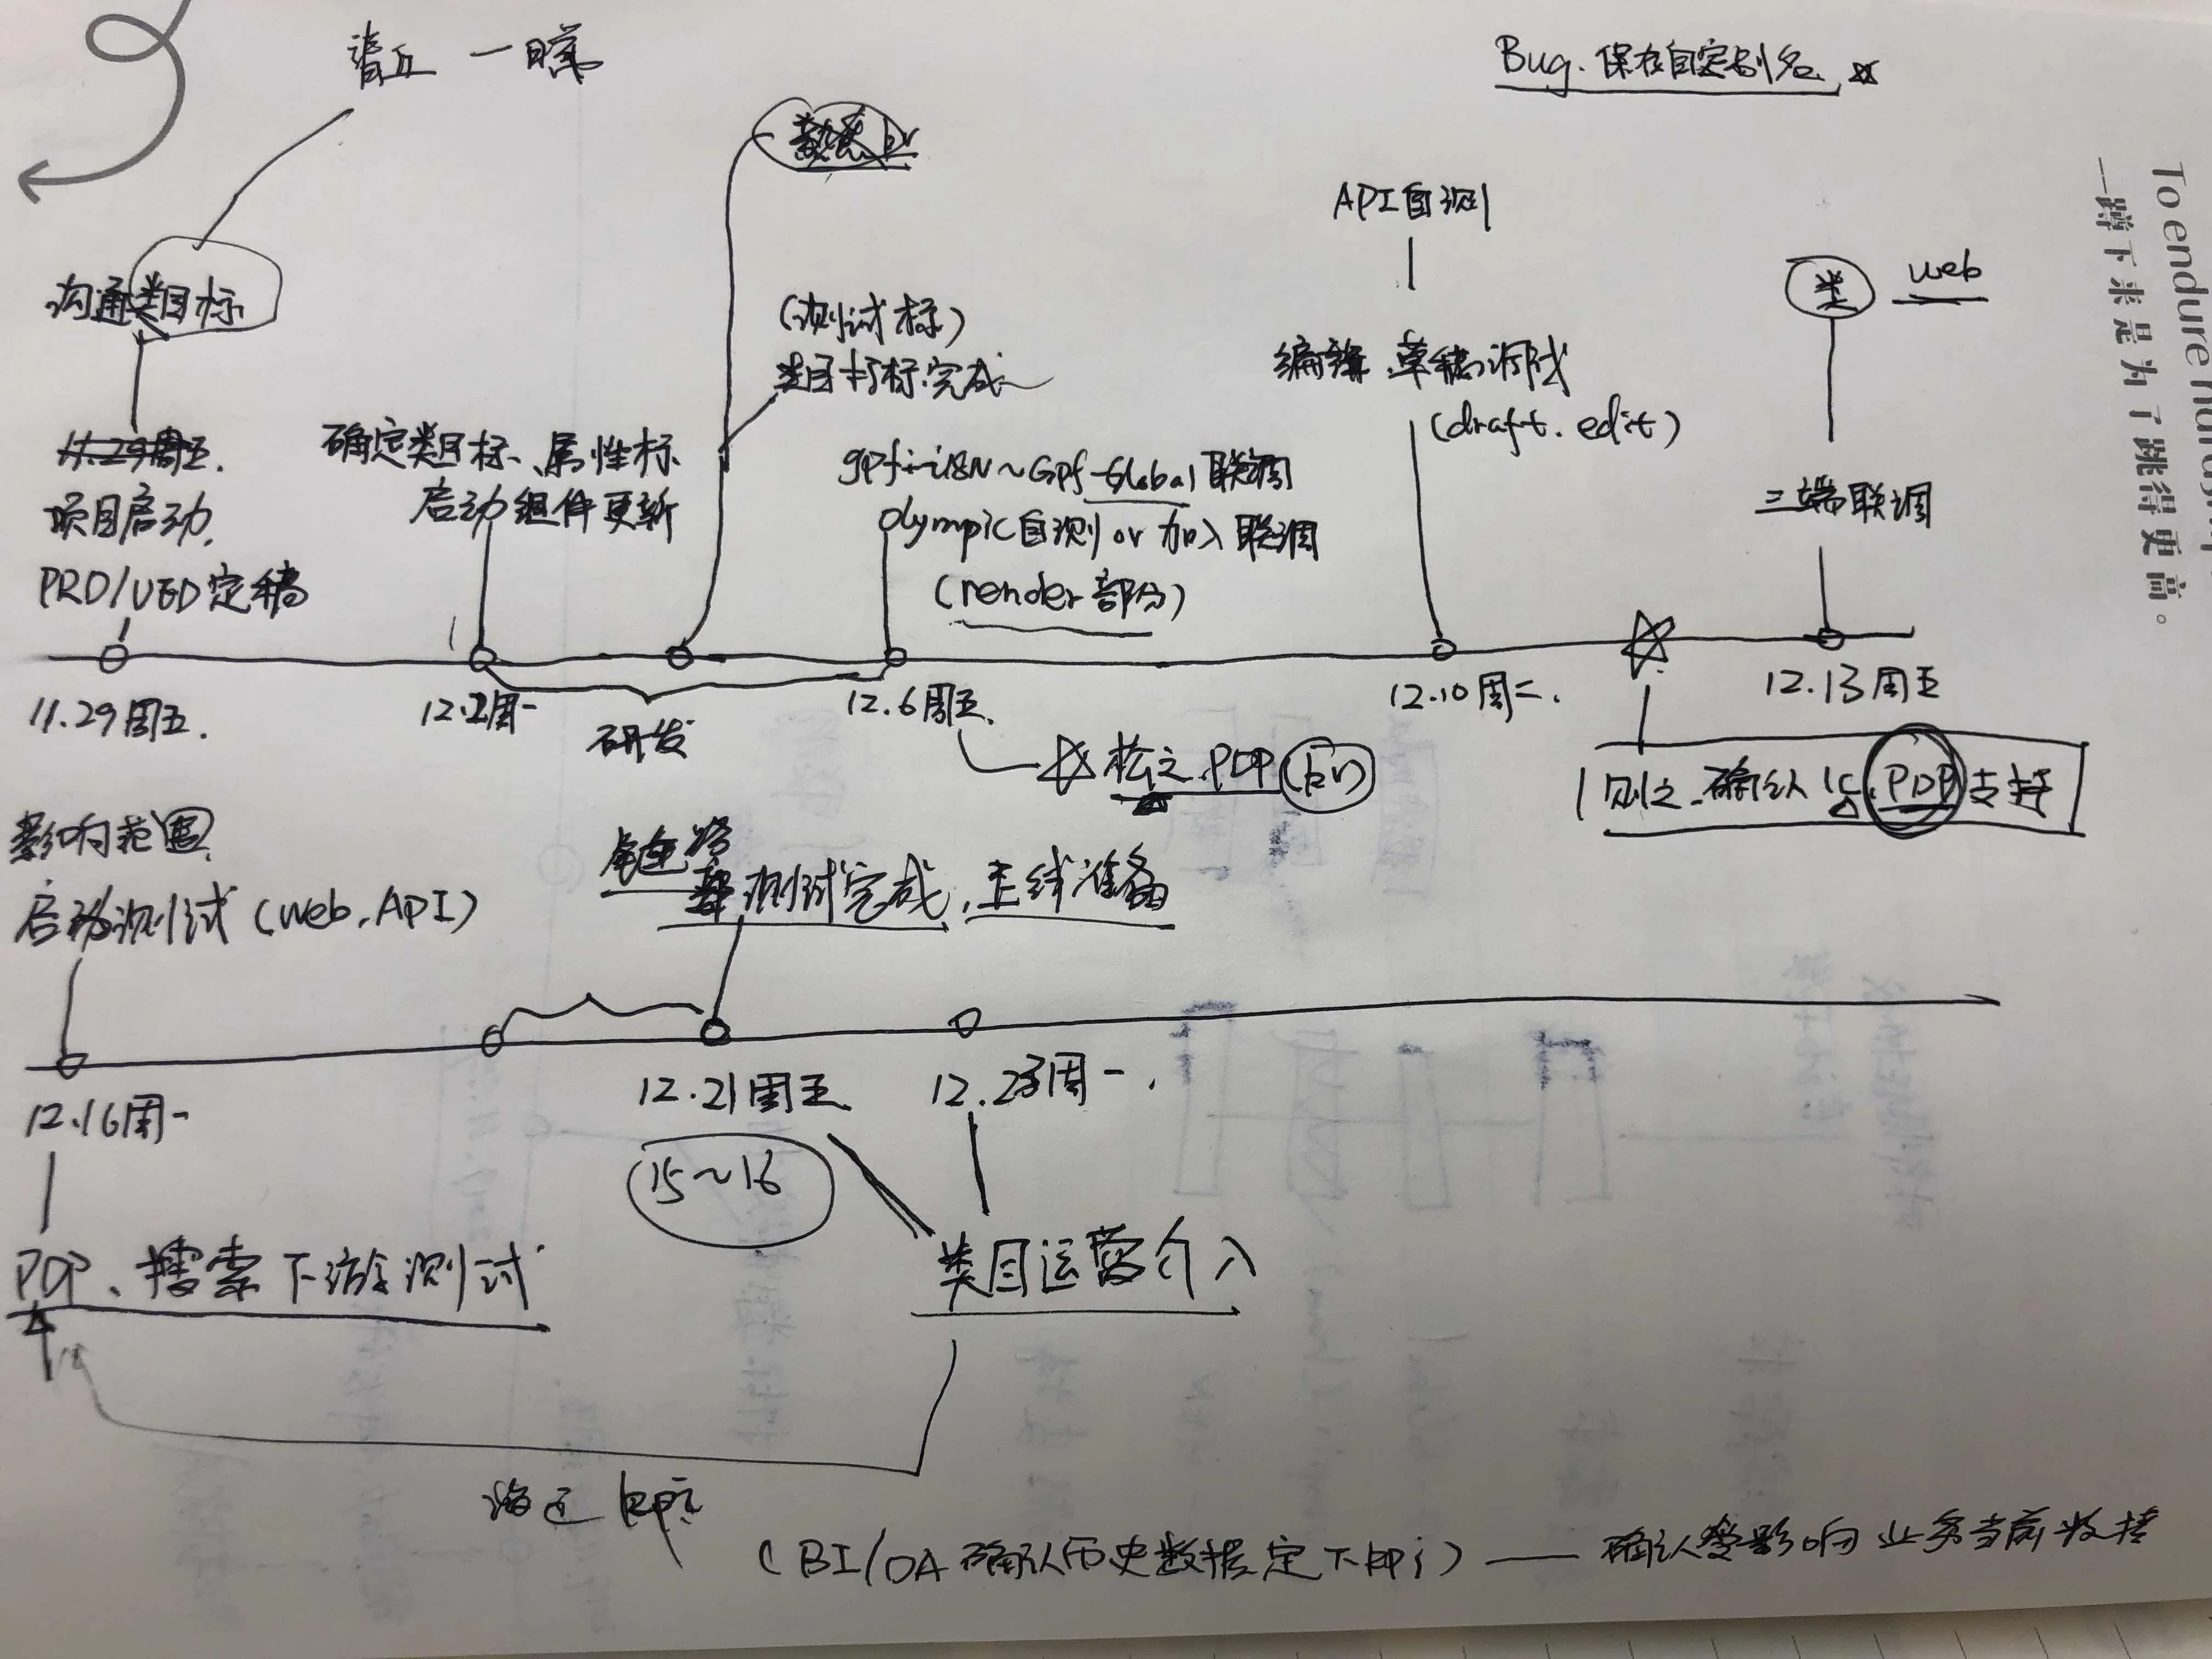 Bug. 保存自定别名
API自测
web
类
沟通类目标
(测试标)
类目打标完成
编辑、草稿调试
(draft. edit)
11.29周五.
项目启动,
PRD/UED定稿
确定类目标、属性标
启动组件更新
gpf-i18N~Gpf-Global联调
Olympic自测 or 加入联调
(render部分)
三端联调
11.29周五.
12.2周一
研发
12.6周五.
12.10周二.
12.13周五
PDP
确认IC、PDP支持
影响范围
启动测试(web、API)
全链路
测试完成、上线准备
12.16周一
12.21周五
12.23周一.
15~16
PDP、搜索下游测试
类目运营介入
(BI/DA确认历史数据定下kpi)——确认受影响业务当前数据
To endure
一蹲下来是为了跳得更高。